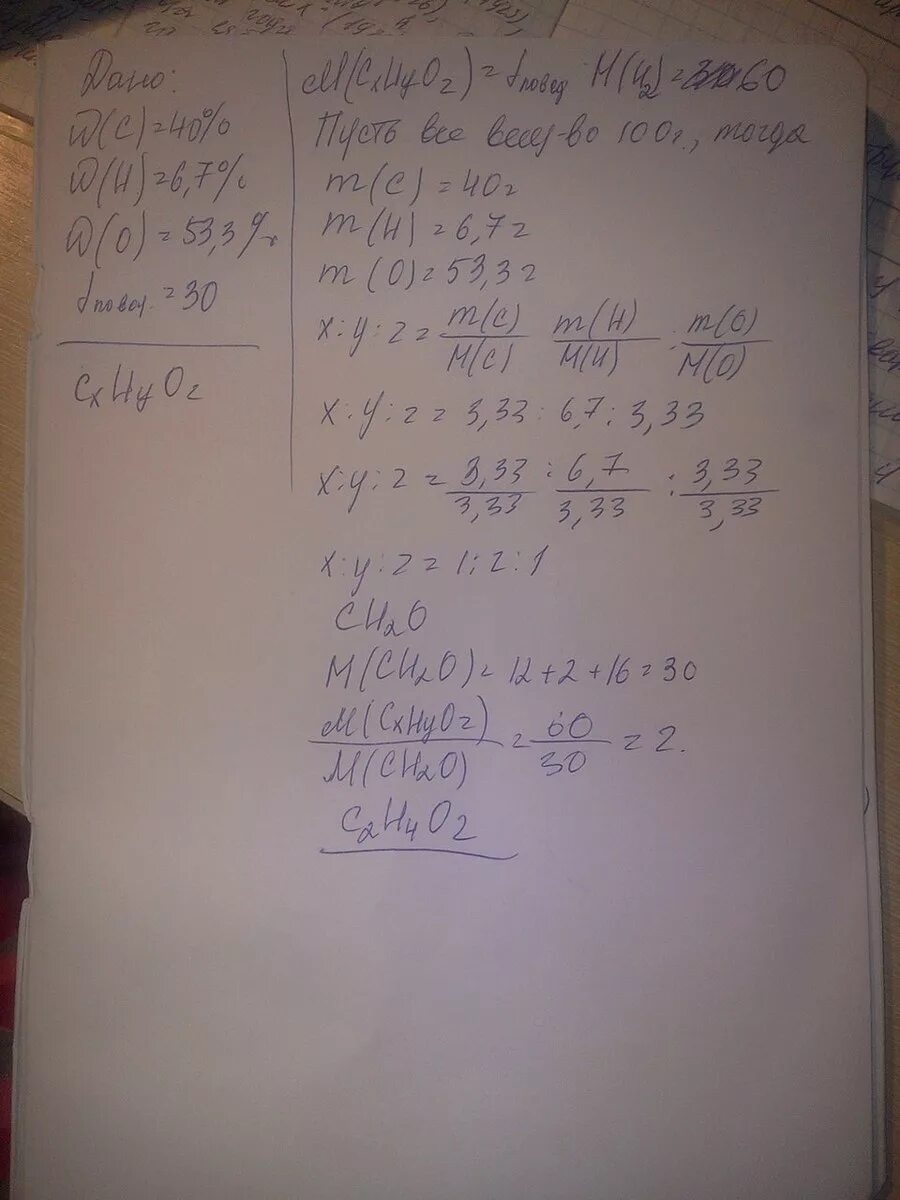 Дано:
W(C)=40%
W(H)=6,7%
W(O)=53,3%
=30
CxHyOz
M(CxHyOz)= M(H2)= 60
Пусть все вещ-во 100г, тогда
m(C)=40г
m(H)=6,7г
m(O)=53,3г
x:y:z= m(C)/M(C) m(H)/M(H) : m(O)/M(O)
x:y:z= 3,33:6,7:3,33
x:y:z= 3,33/3,33 : 6,7/3,33 : 3,33/3,33
x:y:z=1:2:1
CH2O
M(CH2O)=12+2+16=30
M(CxHyOz)/M(CH2O) = 60/30 =2.
C2H4O2